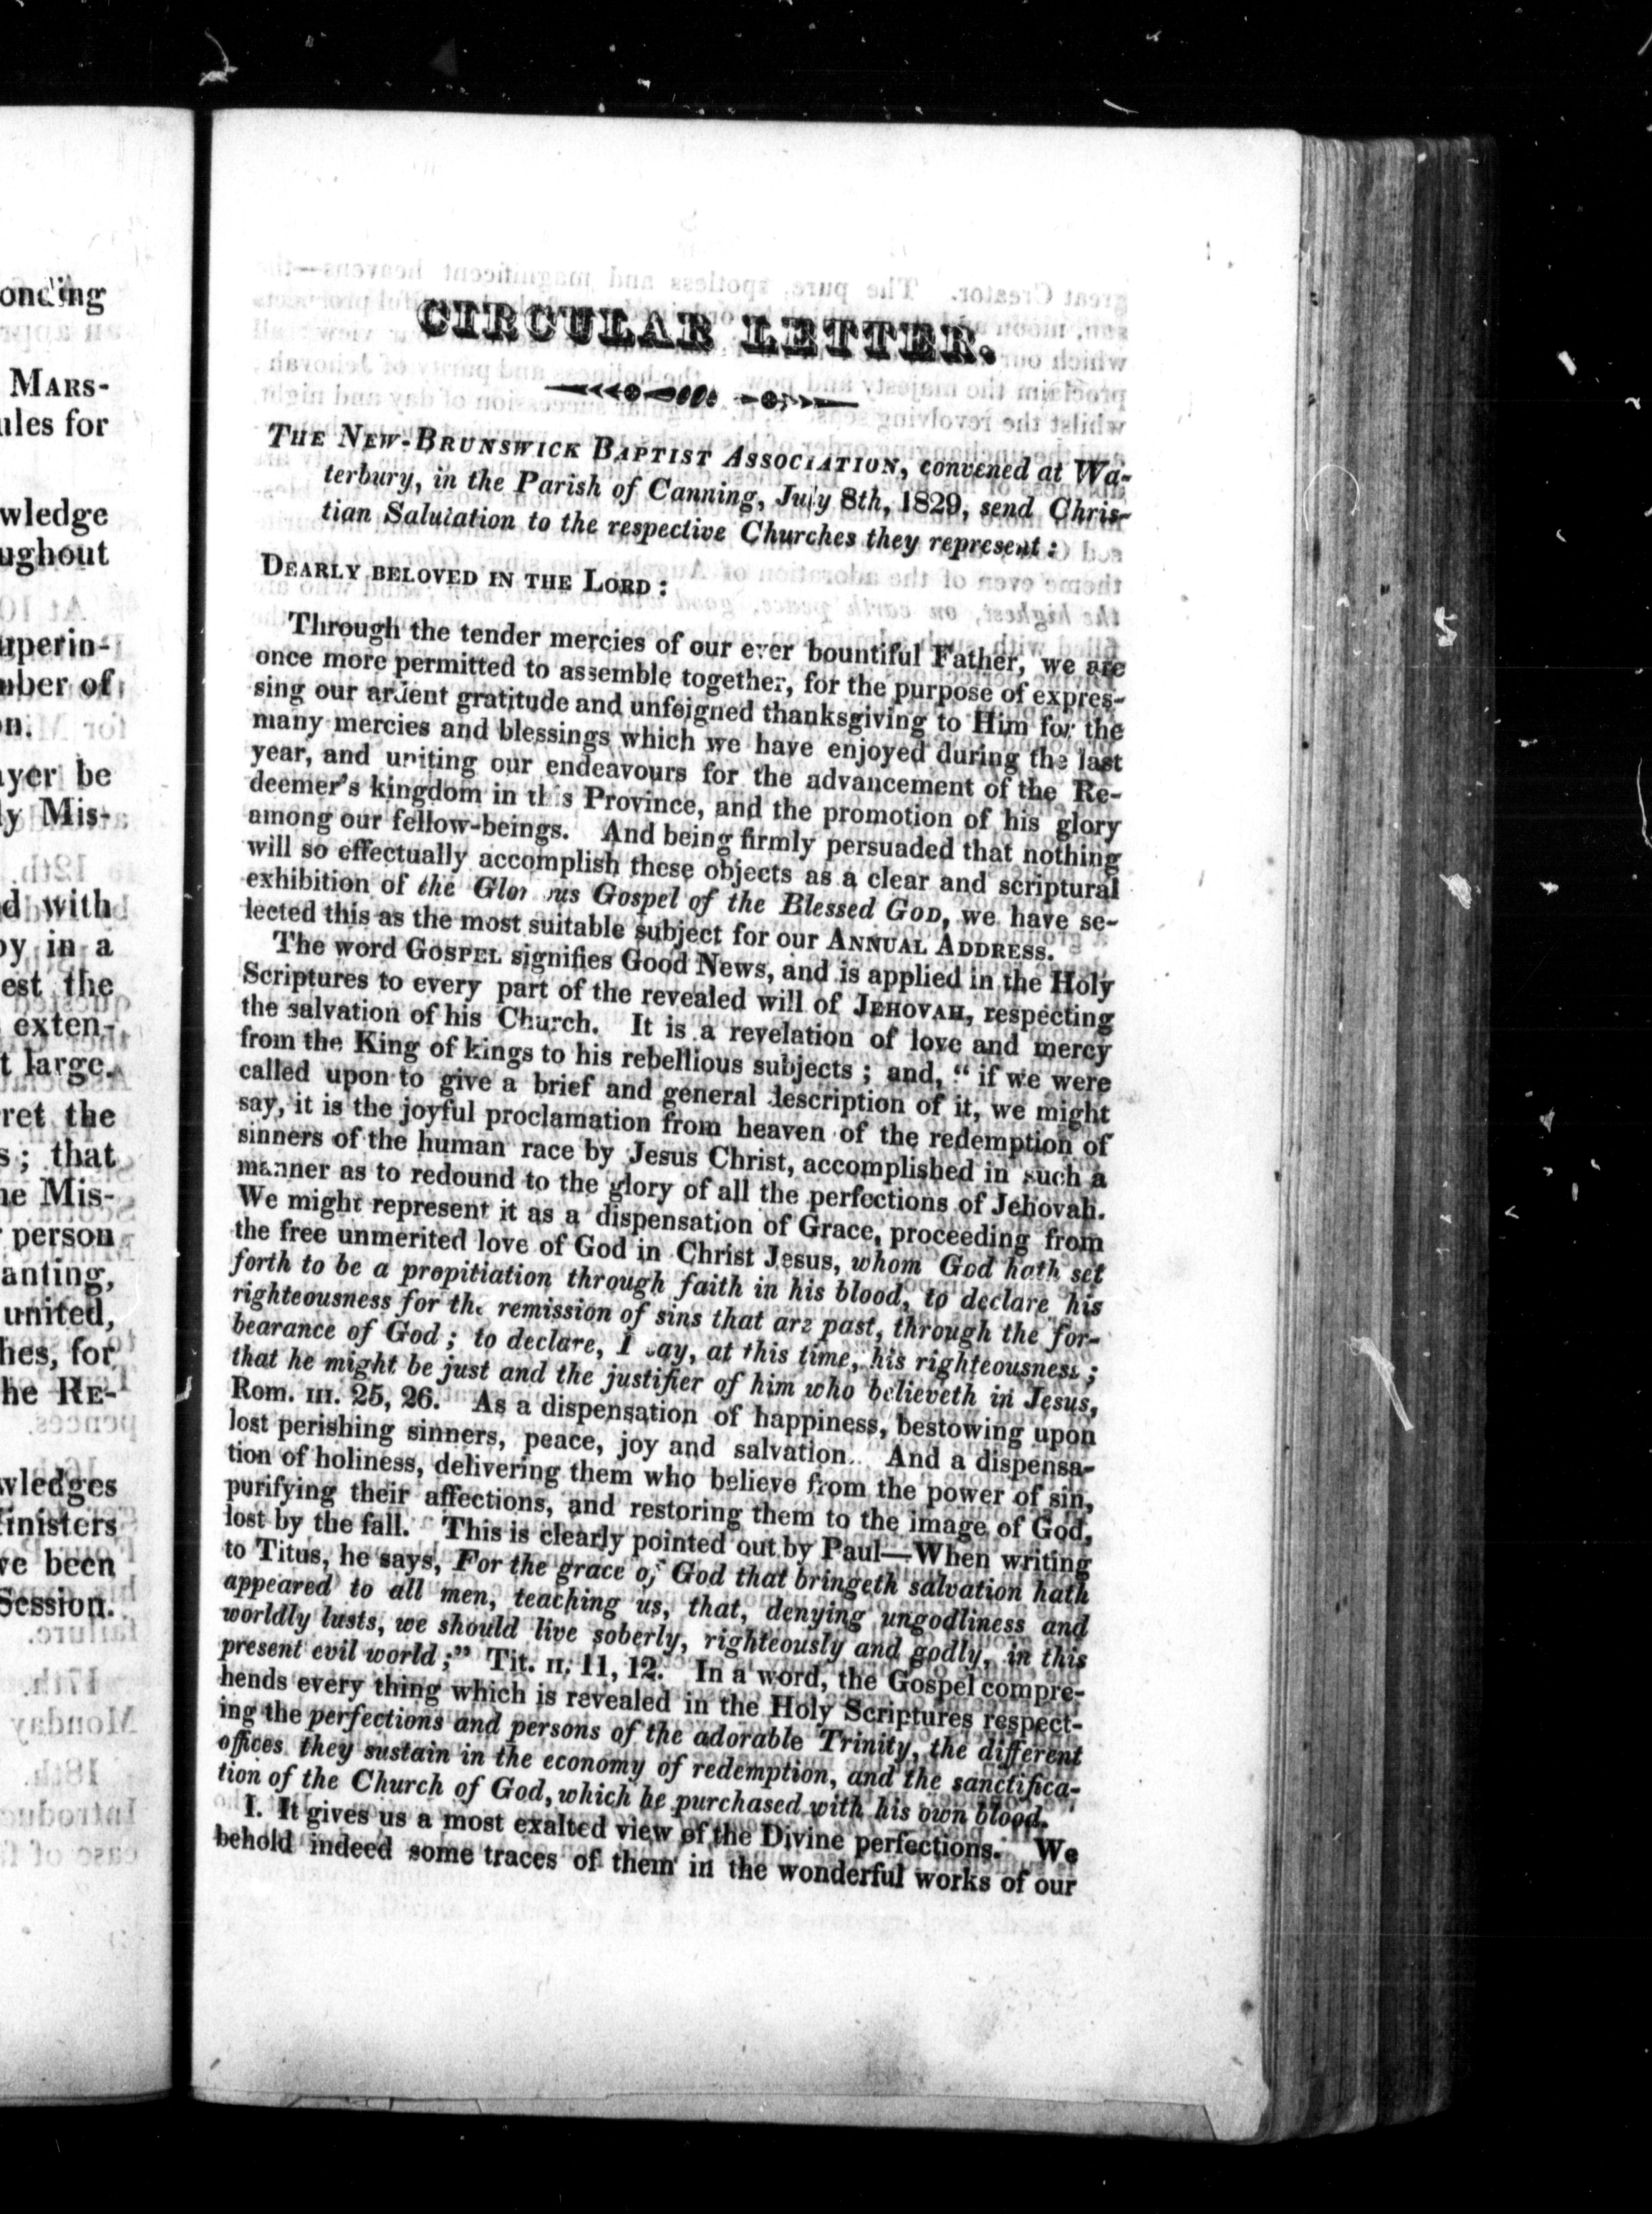 onding
MARS-
ules for
wledge
ughout
uperin-
mber of
on.
ayer be
ly Mis-
d with
by in a
est the
exten-
t large.
ret the
s; that
he Mis-
person
anting,
united,
hes, for
he RE-
wledges
inisters
ve been
Session.
CIRCULAR LETTER.
THE NEW-BRUNSWICK BAPTIST ASSOCIATION, convened at Wa-
terbury, in the Parish of Canning, July 8th, 1829, send Chris-
tian Salutation to the respective Churches they represent:
DEARLY BELOVED IN THE LORD:
Through the tender mercies of our ever bountiful Father, we are
once more permitted to assemble together, for the purpose of expres-
sing our ardent gratitude and unfeigned thanksgiving to Him for the
many mercies and blessings which we have enjoyed during the last
year, and uniting our endeavours for the advancement of the Re-
deemer's kingdom in this Province, and the promotion of his glory
among our fellow-beings. And being firmly persuaded that nothing
will so effectually accomplish these objects as a clear and scriptural
exhibition of the Glorious Gospel of the Blessed GOD, we have se-
lected this as the most suitable subject for our ANNUAL ADDRESS.
The word GOSPEL signifies Good News, and is applied in the Holy
Scriptures to every part of the revealed will of JEHOVAH, respecting
the salvation of his Church. It is a revelation of love and mercy
from the King of kings to his rebellious subjects; and, "if we were
called upon to give a brief and general description of it, we might
say, it is the joyful proclamation from heaven of the redemption of
sinners of the human race by Jesus Christ, accomplished in such a
manner as to redound to the glory of all the perfections of Jehovah.
We might represent it as a dispensation of Grace, proceeding from
the free unmerited love of God in Christ Jesus, whom God hath set
forth to be a propitiation through faith in his blood, to declare his
righteousness for the remission of sins that are past, through the for-
bearance of God; to declare, I say, at this time, his righteousness;
that he might be just and the justifier of him who believeth in Jesus,
Rom. III. 25, 26. As a dispensation of happiness, bestowing upon
lost perishing sinners, peace, joy and salvation. And a dispensa-
tion of holiness, delivering them who believe from the power of sin,
purifying their affections, and restoring them to the image of God,
lost by the fall. This is clearly pointed out by Paul—When writing
to Titus, he says, For the grace of God that bringeth salvation hath
appeared to all men, teaching us, that, denying ungodliness and
worldly lusts, we should live soberly, righteously and godly, in this
present evil world;" Tit. II. 11, 12. In a word, the Gospel compre-
hends every thing which is revealed in the Holy Scriptures respect-
ing the perfections and persons of the adorable Trinity, the different
offices they sustain in the economy of redemption, and the sanctifica-
tion of the Church of God, which he purchased with his own blood.
I. It gives us a most exalted view of the Divine perfections. We
behold indeed some traces of them in the wonderful works of our